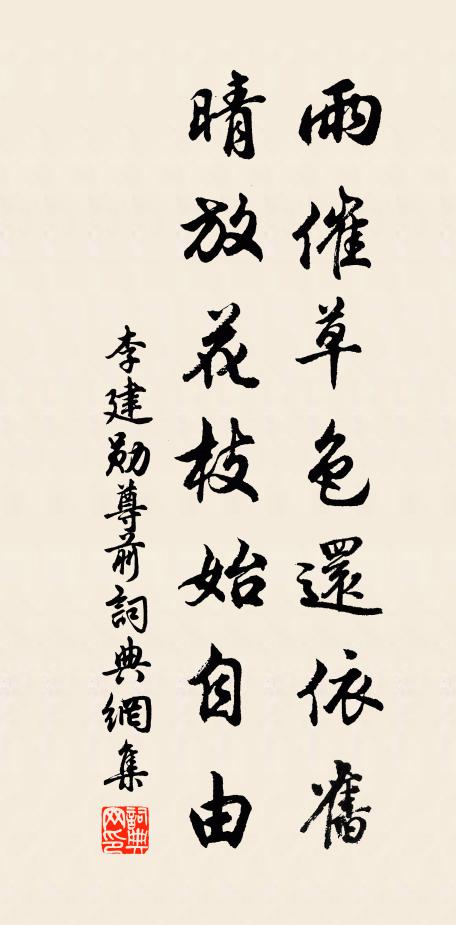 雨催草色還依舊
晴放花枝始自由
李建勛尊前詞典網集
詞典网印